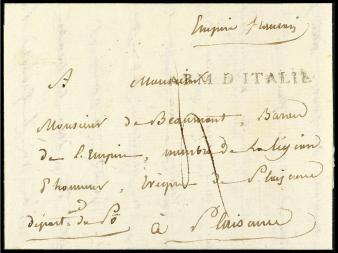 Empire francais
A Monsieur
ARM. D'ITALIE
Monsieur de Beaumont, Baron
de l'Empire, membre de la légion
d'honneur, Evêque de Plaisance
départ. du Pô
à Plaisance